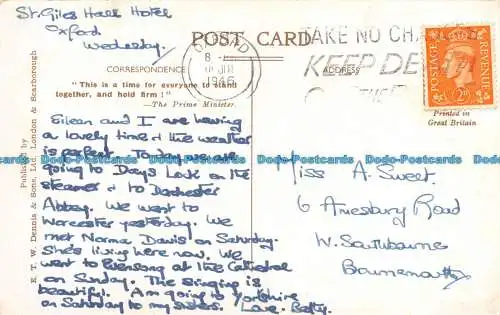 St. Giles Hall Hotel
Oxford
Wednesday.
POST CARD
CORRESPONDENCE
ADDRESS
"This is a time for everyone to stand
together, and hold firm!"
—The Prime Minister.
Eilean and I are having
a lovely time & the weather
is perfect. Today we are
going to Days Lock on the
steamer & to Dorchester
Abbey. We went to
Worcester yesterday. We
met Norma Davis on Saturday.
She's living here now. We
went to Evensong at the Cathedral
on Sunday. The singing is
beautiful. Am going to Yorkshire
on Saturday to my sisters. Love. Betty.
Published by
E. T. W. Dennis & Sons, Ltd. London & Scarborough
1946
TAKE NO CHA
KEEP DE
POSTAGE
REVENUE
Printed in
Great Britain
Miss A. Sweet.
6 Amesbury Road
W. Southbourne
Bournemouth
Dodo-Postcards